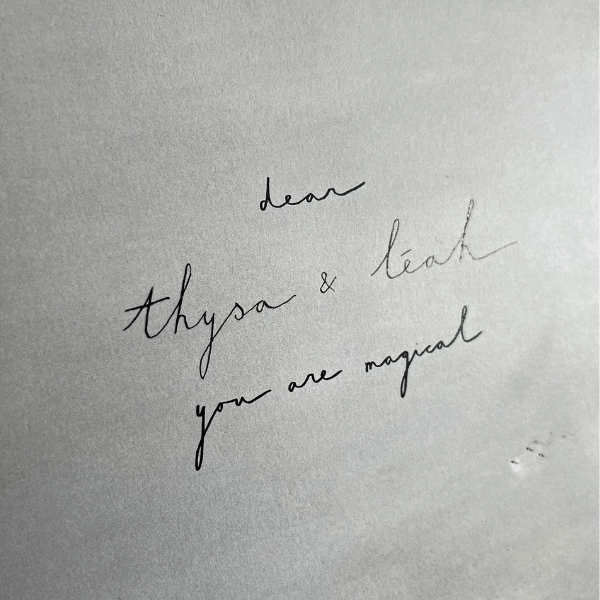 dear
thysa & léah
you are magical